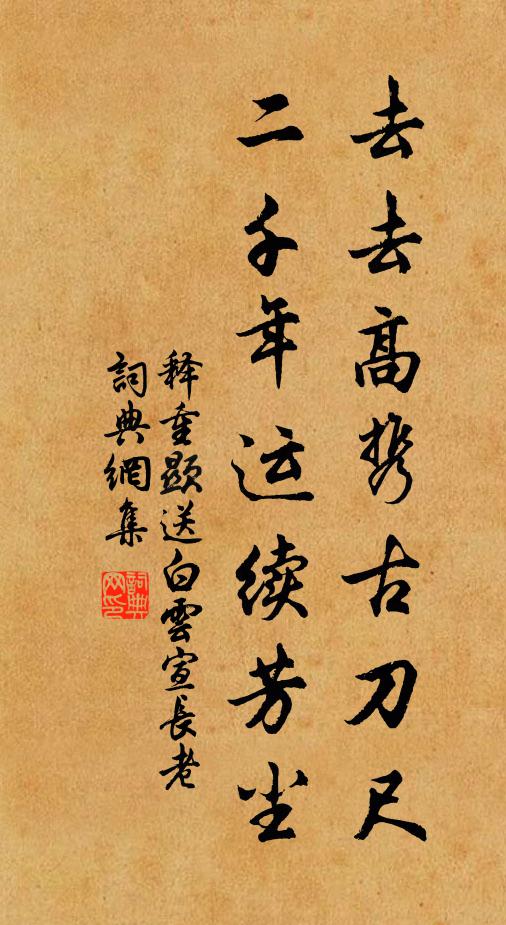 去去高携古刀尺
二千年运续芳尘
释重顯送白雲宣長老
詞典網集
詞典网印